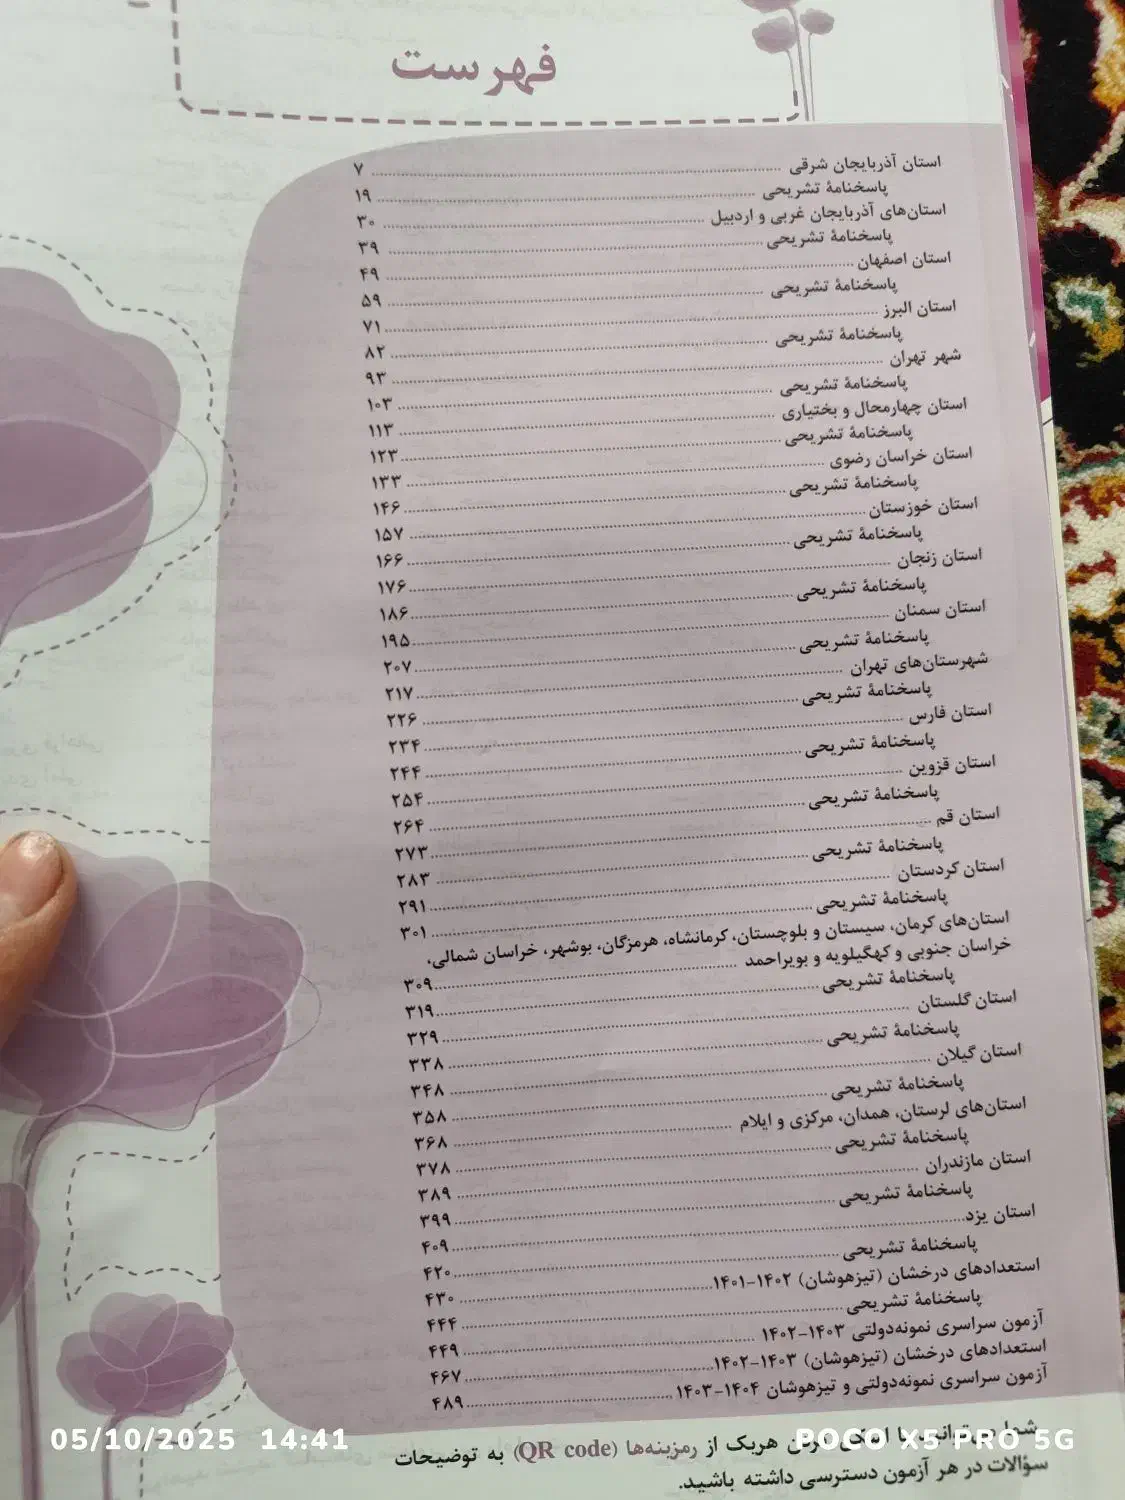 فهرست
استان آذربایجان شرقی ۷
پاسخنامهٔ تشریحی ۱۹
استان‌های آذربایجان غربی و اردبیل ۳۰
پاسخنامهٔ تشریحی ۳۹
استان اصفهان ۴۹
پاسخنامهٔ تشریحی ۵۹
استان البرز ۷۱
پاسخنامهٔ تشریحی ۸۲
شهر تهران ۹۳
پاسخنامهٔ تشریحی ۱۰۳
استان چهارمحال و بختیاری ۱۱۳
پاسخنامهٔ تشریحی ۱۲۳
استان خراسان رضوی ۱۳۳
پاسخنامهٔ تشریحی ۱۴۶
استان خوزستان ۱۵۷
پاسخنامهٔ تشریحی ۱۶۶
استان زنجان ۱۷۶
پاسخنامهٔ تشریحی ۱۸۶
استان سمنان ۱۹۵
پاسخنامهٔ تشریحی ۲۰۷
شهرستان‌های تهران ۲۱۷
پاسخنامهٔ تشریحی ۲۲۶
استان فارس ۲۳۴
پاسخنامهٔ تشریحی ۲۴۴
استان قزوین ۲۵۴
پاسخنامهٔ تشریحی ۲۶۴
استان قم ۲۷۳
پاسخنامهٔ تشریحی ۲۸۳
استان کردستان ۲۹۱
پاسخنامهٔ تشریحی ۳۰۱
استان‌های کرمان، سیستان و بلوچستان، کرمانشاه، هرمزگان، بوشهر، خراسان شمالی،
خراسان جنوبی و کهگیلویه و بویراحمد ۳۰۹
پاسخنامهٔ تشریحی ۳۱۹
استان گلستان ۳۲۹
پاسخنامهٔ تشریحی ۳۳۸
استان گیلان ۳۴۸
پاسخنامهٔ تشریحی ۳۵۸
استان‌های لرستان، همدان، مرکزی و ایلام ۳۶۸
پاسخنامهٔ تشریحی ۳۷۸
استان مازندران ۳۸۹
پاسخنامهٔ تشریحی ۳۹۹
استان یزد ۴۰۹
پاسخنامهٔ تشریحی ۴۲۰
استعدادهای درخشان (تیزهوشان) ۱۴۰۲-۱۴۰۱ ۴۳۰
پاسخنامهٔ تشریحی ۴۴۴
آزمون سراسری نمونه‌دولتی ۱۴۰۳-۱۴۰۲ ۴۴۹
استعدادهای درخشان (تیزهوشان) ۱۴۰۳-۱۴۰۲ ۴۶۷
آزمون سراسری نمونه‌دولتی و تیزهوشان ۱۴۰۴-۱۴۰۳ ۴۸۹
هریک از رمزینه‌ها (QR code) به توضیحات
سؤالات در هر آزمون دسترسی داشته باشید.
05/10/2025 14:41
POCO X5 PRO 5G